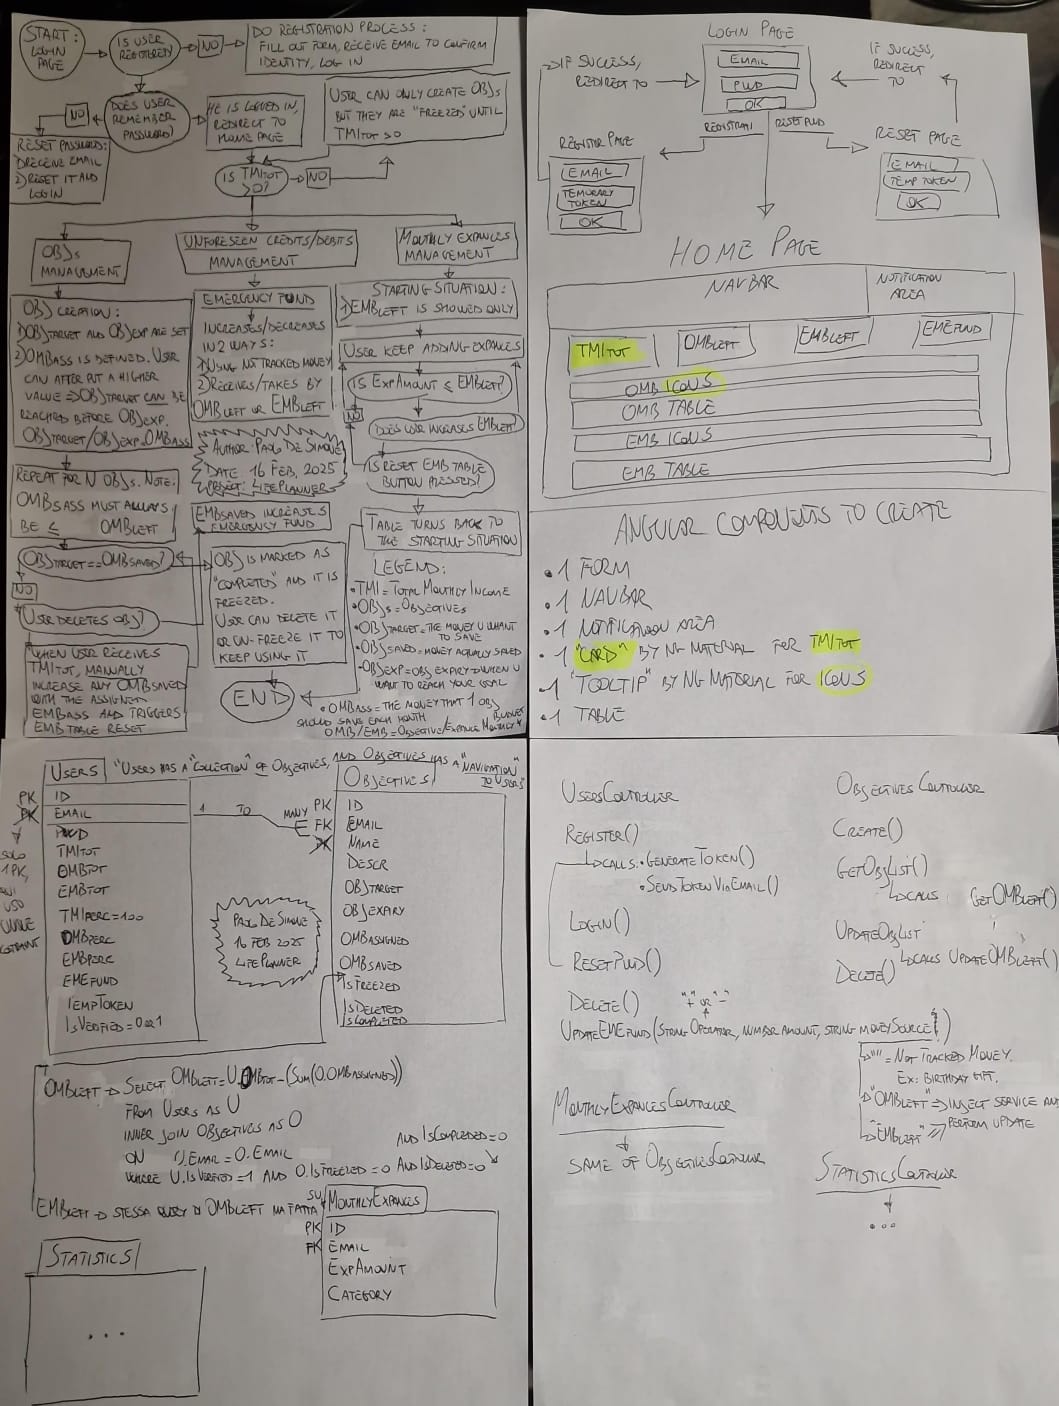 START:
LOGIN
PAGE
IS USER
REGISTERED
NO
DO REGISTRATION PROCESS:
FILL OUT FORM, RECEIVE EMAIL TO CONFIRM
IDENTITY, LOG IN
NO
DOES USER
REMEMBER
PASSWORD?
HE IS LOGGED IN,
REDIRECT TO
HOME PAGE
USER CAN ONLY CREATE OBJs
BUT THEY ARE "FREEZED" UNTIL
TMITOT >0
RESET PASSWORD:
1) RECEIVE EMAIL
2) RESET IT AND
LOGIN
IS TMITOT
>0?
NO
OBJs
MANAGEMENT
UNFORESEEN CREDITS/DEBITS
MANAGEMENT
MONTHLY EXPANCES
MANAGEMENT
OBJ CREATION:
1) OBJTARGET AND OBJEXP ARE SET
2) OMBASS IS DEFINED. USER
CAN AFTER PUT A HIGHER
VALUE => OBJTARGET CAN BE
REACHED BEFORE OBJEXP.
OBJTARGET/OBJEXP=OMBASS
EMERGENCY FUND
INCREASES/DECREASES
IN 2 WAYS:
1) USING NOT TRACKED MONEY
2) RECEIVES/TAKES BY
OMBLEFT OR EMBLEFT
STARTING SITUATION:
1) EMBLEFT IS SHOWED ONLY
USER KEEP ADDING EXPANCES
IS EXPAMOUNT ≤ EMBLEFT?
NO
DOES USER INCREASE EMBLEFT?
IS RESET EMB TABLE
BUTTON PRESSED?
AUTHOR: PAOLO DE SIMONE
DATE: 16 FEB, 2025
PROJECT: LIFEPLANNER
REPEAT FOR N OBJs. NOTE:
OMBSASS MUST ALWAYS
BE ≤ OMBLEFT
EMBSAVED INCREASES
EMERGENCY FUND
TABLE TURNS BACK TO
THE STARTING SITUATION
OBJTARGET==OMBSAVED?
NO
OBJ IS MARKED AS
"COMPLETED" AND IT IS
FREEZED.
USER CAN DELETE IT
OR UN-FREEZE IT TO
KEEP USING IT
USER DELETES OBJ?
WHEN USER RECEIVES
TMITOT, MANUALLY
INCREASE ANY OMBSAVED
WITH THE ASSIGNED
EMBASS AND TRIGGERS
EMB TABLE RESET
END
LEGEND:
• TMI = TOTAL MONTHLY INCOME
• OBJs = OBJECTIVES
• OBJTARGET = THE MONEY U WANT
TO SAVE
• OBJSAVED = MONEY ACTUALLY SAVED
• OBJEXP = OBJ EXPIRY => WHEN U
WANT TO REACH YOUR GOAL
• OMBASS = THE MONEY THAT 1 OBJ
SHOULD SAVE EACH MONTH
OMB/EMB = OBJECTIVE/EXPANCE MONTHLY BUDGET
LOGIN PAGE
EMAIL
PWD
OK
IF SUCCESS,
REDIRECT TO
IF SUCCESS,
REDIRECT
TO
REGISTRATI
RESET PWD
REGISTER PAGE
EMAIL
TEMPORARY
TOKEN
OK
RESET PAGE
EMAIL
TEMP TOKEN
OK
HOME PAGE
NAVBAR
NOTIFICATION
AREA
TMITOT
OMBLEFT
EMBLEFT
EMEFUND
OMB ICONS
OMB TABLE
EMB ICONS
EMB TABLE
ANGULAR COMPONENTS TO CREATE
• 1 FORM
• 1 NAVBAR
• 1 NOTIFICATION AREA
• 1 "CARD" BY NG MATERIAL FOR TMITOT
• 1 "TOOLTIP" BY NG MATERIAL FOR ICONS
• 1 TABLE
USERS
"USERS HAS A "COLLECTION" OF OBJECTIVES, AND OBJECTIVES HAS A "NAVIGATION" TO USERS"
PK ID
PK EMAIL
PWD
TMITOT
OMBTOT
EMBTOT
TMIPERC=100
OMBPERC
EMBPERC
EMEFUND
TEMPTOKEN
ISVERIFIED=0 OR 1
SOLO
1 PK,
QUI
USO
UNIQUE
CONSTRAINT
1 TO MANY
OBJECTIVES
PK ID
FK EMAIL
NAME
DESCR
OBJTARGET
OBJEXPIRY
OMBASSIGNED
OMBSAVED
ISFREEZED
ISDELETED
ISCOMPLETED
PAOLO DE SIMONE
16 FEB 2025
LIFEPLANNER
OMBLEFT → SELECT OMBLEFT=U.OMBTOT-(SUM(O.OMBASSIGNED))
FROM USERS AS U
INNER JOIN OBJECTIVES AS O
ON U.EMAIL = O.EMAIL
WHERE U.ISVERIFIED=1 AND O.ISFREEZED=0 AND ISDELETED=0
AND ISCOMPLETED=0
EMBLEFT → STESSA QUERY DI OMBLEFT MA FATTA SU MONTHLYEXPANCES
PK ID
FK EMAIL
EXPAMOUNT
CATEGORY
STATISTICS
...
USERSCONTROLLER
REGISTER()
CALLS: • GENERATETOKEN()
• SENDTOKENVIAEMAIL()
LOGIN()
RESETPWD()
DELETE()
"+" OR "-"
UPDATEEMEFUND(STRING OPERATOR, NUMBER AMOUNT, STRING MONEYSOURCE)
"" = NOT TRACKED MONEY.
EX: BIRTHDAY GIFT.
"OMBLEFT" => INJECT SERVICE AND
PERFORM UPDATE
"EMBLEFT" =>
OBJECTIVESCONTROLLER
CREATE()
GETOBJLIST()
CALLS GETOMBLEFT()
UPDATEOBJLIST
CALLS UPDATEOMBLEFT()
DELETE()
MONTHLYEXPANCESCONTROLLER
SAME OF OBJECTIVESCONTROLLER
STATISTICSCONTROLLER
...